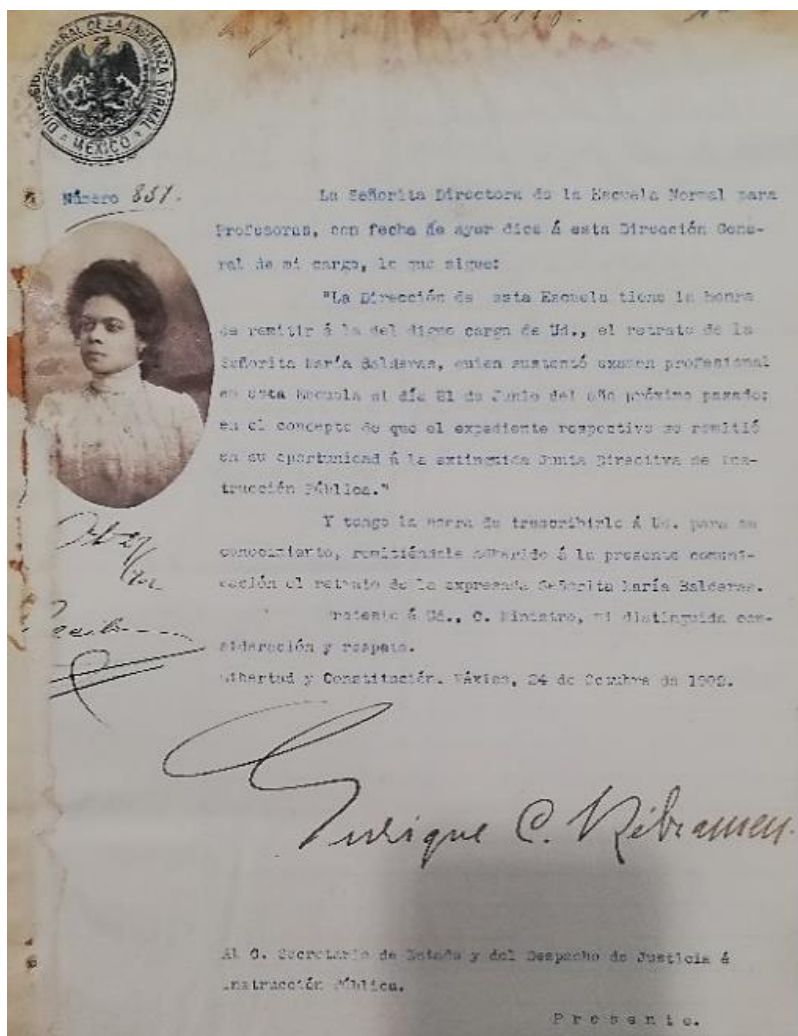 DIRECCIÓN GENERAL DE LA ENSEÑANZA NORMAL
MEXICO
Número 831.
La Señorita Directora de la Escuela Normal para
Profesoras, con fecha de ayer dice á esta Dirección Gene-
ral de mi cargo, lo que sigue:
"La Dirección de esta Escuela tiene la honra
de remitir á la del digno cargo de Ud., el retrato de la
Señorita María Balderas, quien sustentó examen profesional
en esta Escuela el día 21 de Junio del año próximo pasado;
en el concepto de que el expediente respectivo se remitió
en su oportunidad á la extinguida Junta Directiva de Ins-
trucción Pública."
Y tengo la honra de trascribirlo á Ud. para su
conocimiento, remitiéndole adherido á la presente comuni-
cación el retrato de la expresada Señorita María Balderas.
Protesto á Ud., C. Ministro, mi distinguida con-
sideración y respeto.
Libertad y Constitución. México, 24 de Octubre de 1902.
Enrique C. Rébsamen.
Al C. Secretario de Estado y del Despacho de Justicia é
Instrucción Pública.
Presente.